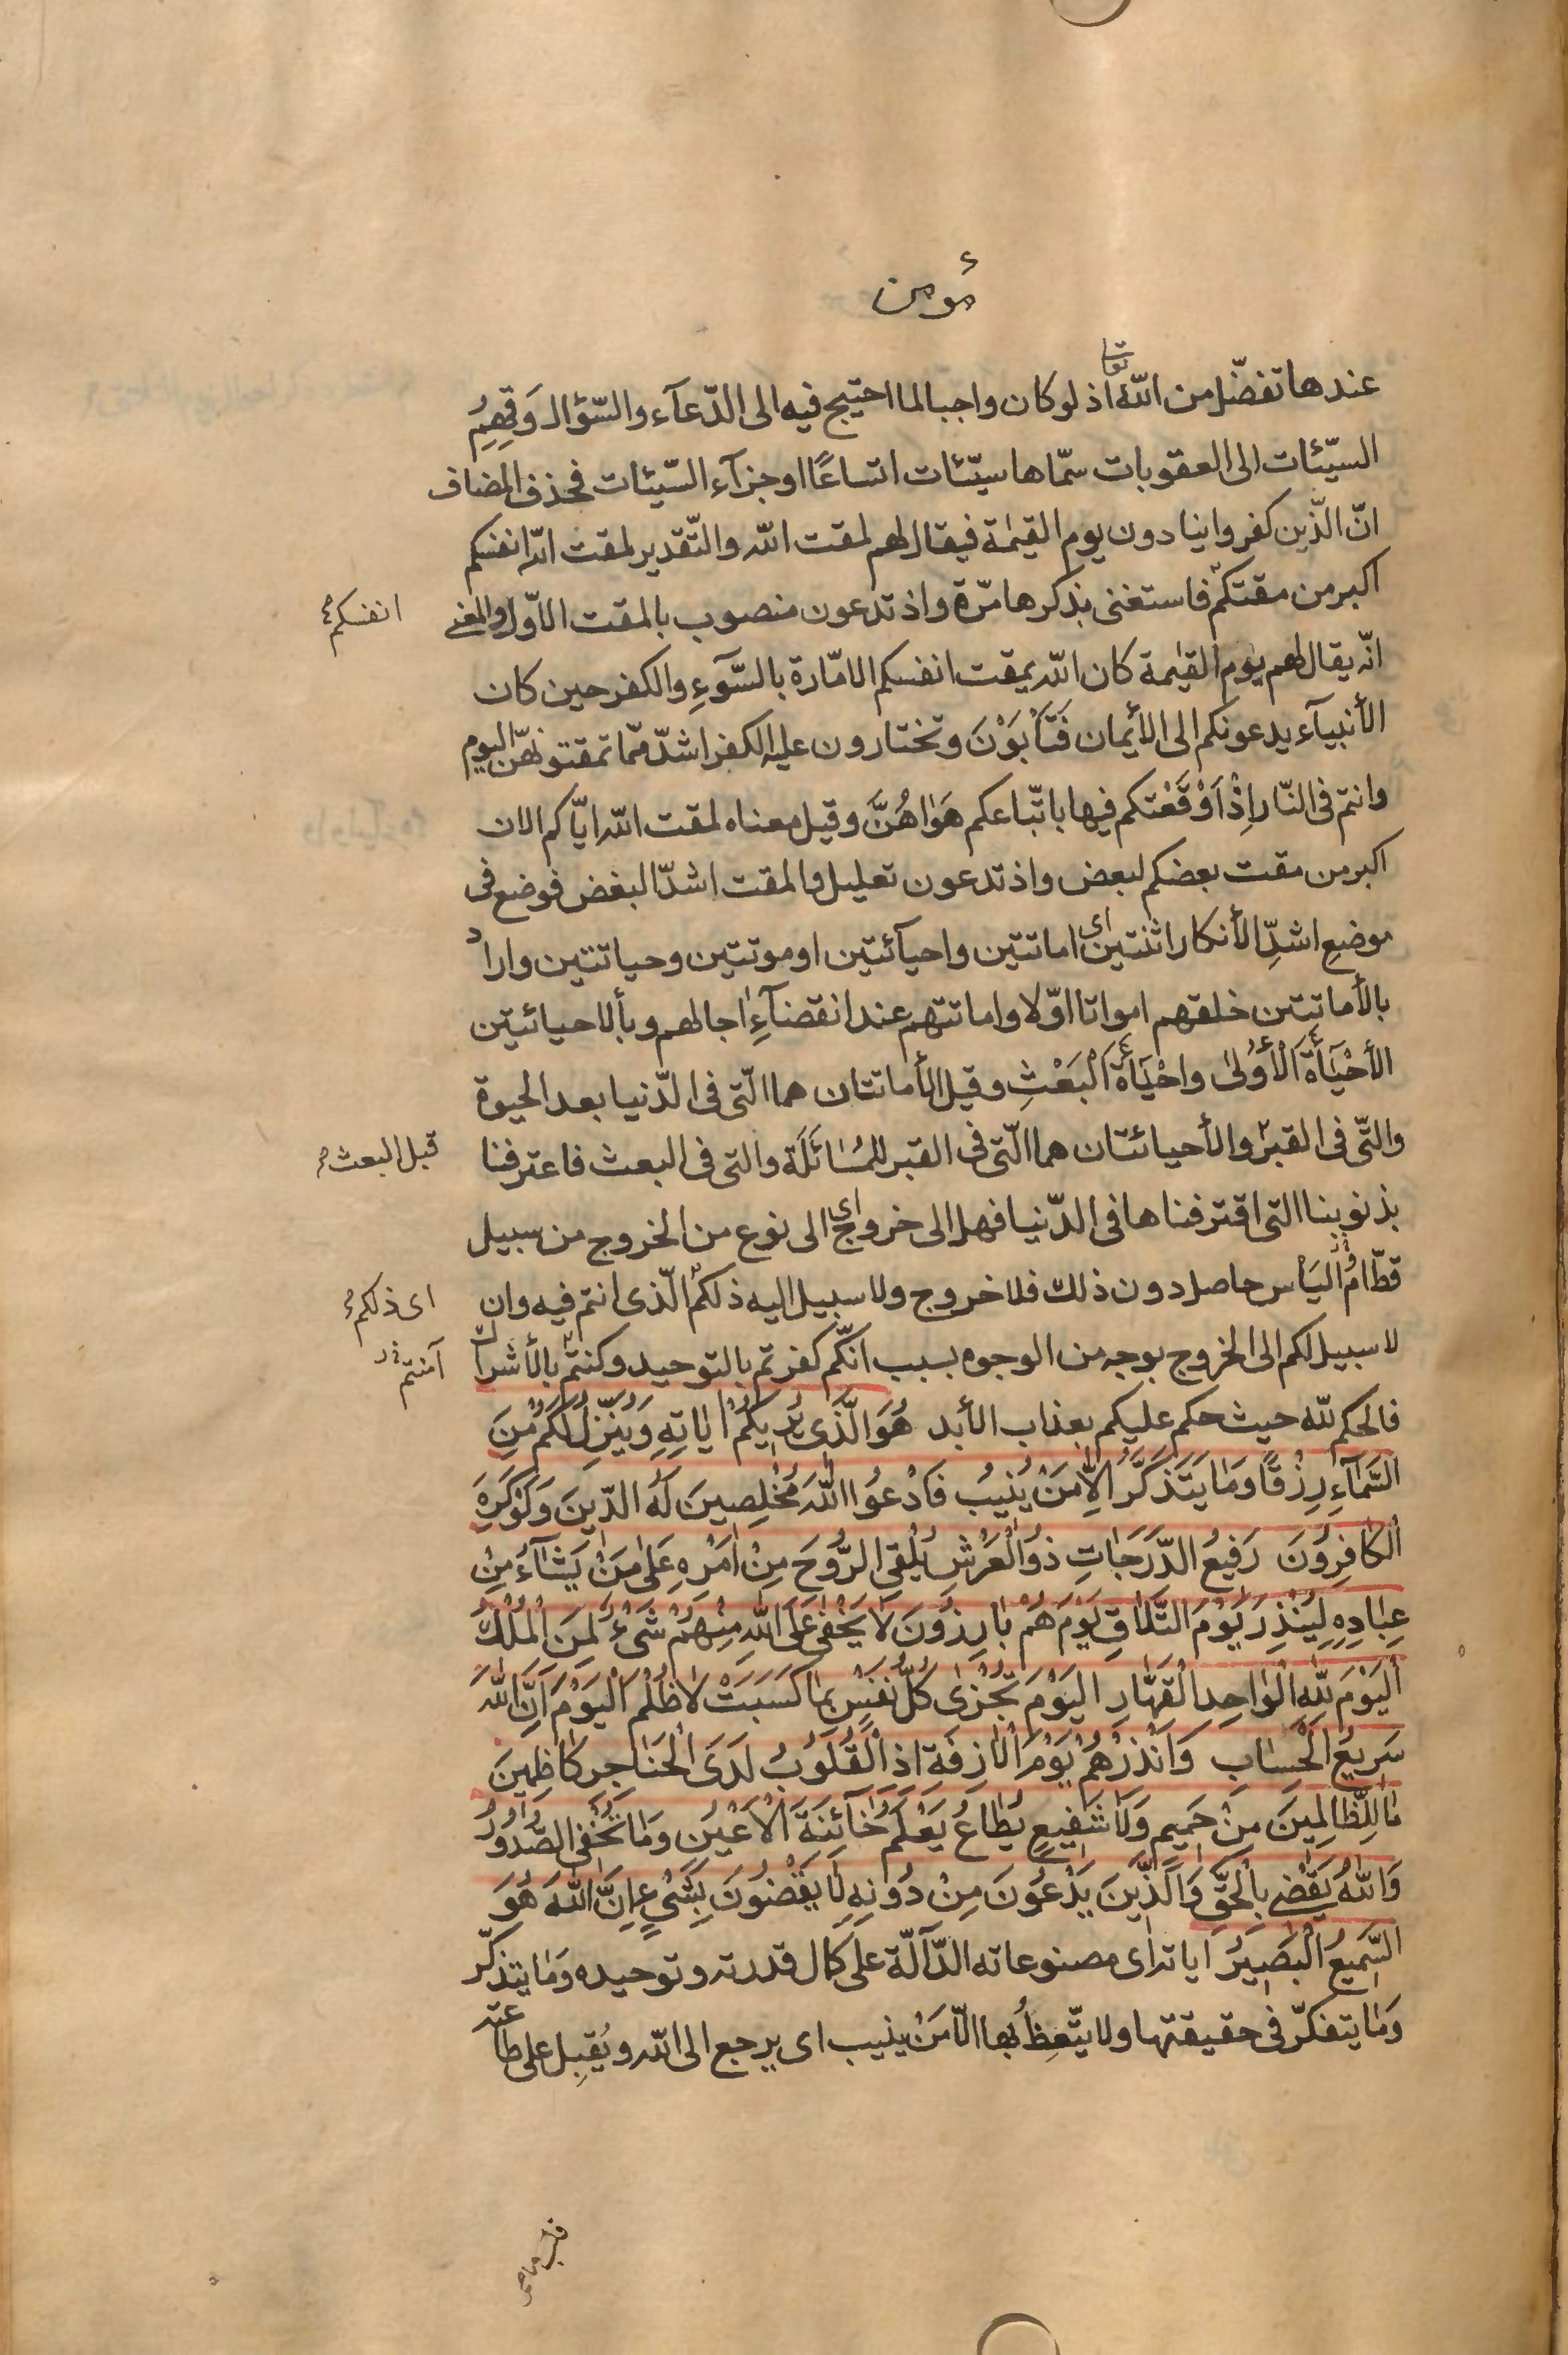 مؤمن
عندها تفضّل من اللّه تعا اذ لو كان واجبا لما احتيج فيه الى الدّعآء والسّؤال وَقِهِمُ
السيّئات الى العقوبات سمّاها سيّئات اتساعًا او جزآء السّيّئات فحذف المضاف
انّ الذّين كفروا ينادون يوم القيٰمة فيقال لهم لمقت اللّه والتّقدير لمقت اللّه انفسكم
اكبر من مقتكم فاستغنى بذكرها مرّة واذ تدعون منصوب بالمقت الاوّل والمعنى
انفسكم
انّه يقال لهم يوم القيٰمة كان اللّه يمقت انفسكم الامّارة بالسّوٓءِ والكفر حين كان
الأنبيآء يدعونكم الى الأيمان فَتَأْبَوْنَ وتختارون عليه الكفر اشدّ ممّا تمقتونهنّ اليوم
وانتم فى النّار اِذْ اَوْقَعْتكم فيها باتّباعكم هَوٰاهُنَّ وقيل معناه لمقت اللّه ايّاكم الان
اكبر من مقت بعضكم لبعض واذ تدعون تعليل والمقت اشدّ البغض فوضع فى
موضعِ اشدِّ الأنكار اثنتين اى اماتتين واحيآئتين او موتتين وحياتتين واراد
بالأماتتين خلقهم امواتا اوّلا واماتتهم عند انقضآءِ اجالهم وبألاحيائتين
الأحْيَآءَةَ الْأُولىٰ واحْيَآءَةَ الْبَعْثِ وقيل الأماتتان هما الّتى فى الدّنيا بعد الحيوة
والتّى فى القبر والأحيائتان هما الّتى فى القبر للمُسٰائَلَة والتى فى البعث فاعترفنا
قبل البعث
بذنوبنا التى اقترفناها فى الدّنيا فهل الى خروج اى الى نوع من الخروج من سبيل
قطّ ام اليَأس حاصل دون ذلك فلا خروج ولا سبيل اليه ذلكم الّذى انتم فيه وان
اى ذلكم
لا سبيل لكم الى الخروج بوجه من الوجوه بسبب انّكم كفرتم بالتوحيد وكنتم بالأشراك
آمنتم
فالحكم للّه حيث حكم عليكم بعذاب الأبد هُوَ الَّذى يُرٖيكُمْ اٰيٰاتِهِ وَيُنَزِّلُ لَكُمْ مِنَ
السَّمٰآءِ رِزْقًا وَمٰا يَتَذَكَّرُ اِلاّٰ مَنْ يُنيبُ فَادْعُوا اللّٰهَ مُخْلِصينَ لَهُ الدّينَ وَلَوْ كَرِهَ
الْكٰافِرُونَ رَفيعُ الدَّرَجٰاتِ ذُو الْعَرْشِ يُلْقِى الرُّوحَ مِنْ اَمْرِهِ عَلىٰ مَنْ يَشٰآءُ مِنْ
عِبٰادِهِ لِيُنْذِرَ يَوْمَ التَّلاٰقِ يَوْمَ هُمْ بٰارِزُونَ لاٰ يَخْفىٰ عَلَى اللّٰهِ مِنْهُمْ شَىْءٌ لِمَنِ الْمُلْكُ
الْيَوْمَ لِلّٰهِ الْوٰاحِدِ الْقَهّٰارِ اليَوْمَ تُجْزىٰ كُلُّ نَفْسٍ بِمٰا كَسَبَتْ لاٰ ظُلْمَ الْيَوْمَ اِنَّ اللّٰهَ
سَريعُ الْحِسٰابِ وَاَنْذِرْهُمْ يَوْمَ الْاٰزِفَةِ اِذِ الْقُلُوبُ لَدَى الْحَنٰاجِرِ كٰاظِمينَ
مٰا لِلظّٰالِمينَ مِنْ حَميمٍ وَلٰا شَفيعٍ يُطٰاعُ يَعْلَمُ خٰآئِنَةَ الْاَعْيُنِ وَمٰا تُخْفِى الصُّدُورُ
وَاللّٰهُ يَقْضى بِالْحَقِّ وَالَّذينَ يَدْعُونَ مِنْ دُونِهِ لٰا يَقْضُونَ بِشَىْءٍ اِنَّ اللّٰهَ هُوَ
السَّميعُ الْبَصيرُ اياته اى مصنوعاته الدّآلّة على كمال قدرته وتوحيده وَمٰا يتذكّر
وَمٰا يتفكّر فى حقيقتها ولا يتّعِظُ بها الّا مَنْ ينيب اى يرجع الى اللّه ويُقبِل على طاعته